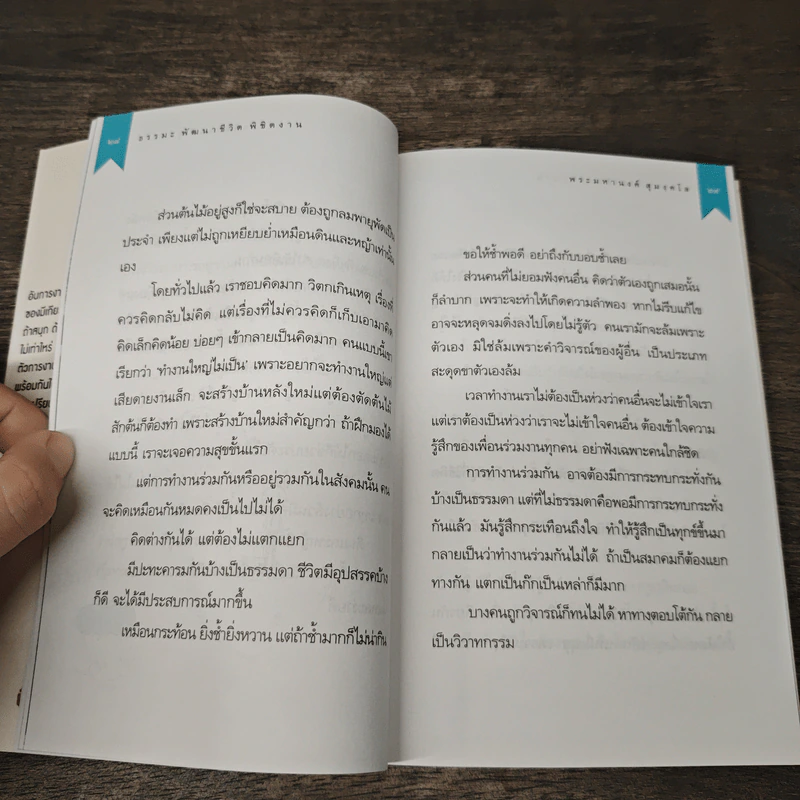 ๒๘
ธรรมะ พัฒนาชีวิต พิชิตงาน
ส่วนต้นไม้อยู่สูงก็ใช่จะสบาย ต้องถูกลมพายุพัดเป็น
ประจำ เพียงแต่ไม่ถูกเหยียบย่ำเหมือนดินและหญ้าเท่านั้น
เอง
โดยทั่วไปแล้ว เราชอบคิดมาก วิตกเกินเหตุ เรื่องที่
ควรคิดกลับไม่คิด แต่เรื่องที่ไม่ควรคิดก็เก็บเอามาคิด
คิดเล็กคิดน้อย บ่อยๆ เข้ากลายเป็นคิดมาก คนแบบนี้เขา
เรียกว่า ‘ทำงานใหญ่ไม่เป็น’ เพราะอยากจะทำงานใหญ่แต่
เสียดายงานเล็ก จะสร้างบ้านหลังใหม่แต่ต้องตัดต้นไม้
สักต้นก็ต้องทำ เพราะสร้างบ้านใหม่สำคัญกว่า ถ้าฝึกมองได้
แบบนี้ เราจะเจอความสุขขั้นแรก
แต่การทำงานร่วมกันหรืออยู่รวมกันในสังคมนั้น คน
จะคิดเหมือนกันหมดคงเป็นไปไม่ได้
คิดต่างกันได้ แต่ต้องไม่แตกแยก
มีปะทะคารมกันบ้างเป็นธรรมดา ชีวิตมีอุปสรรคบ้าง
ก็ดี จะได้มีประสบการณ์มากขึ้น
เหมือนกระท้อน ยิ่งช้ำยิ่งหวาน แต่ถ้าช้ำมากก็ไม่น่ากิน
พระมหานงค์ สุมงคโล
๒๙
ขอให้ช้ำพอดี อย่าถึงกับบอบช้ำเลย
ส่วนคนที่ไม่ยอมฟังคนอื่น คิดว่าตัวเองถูกเสมอนั้น
ก็ลำบาก เพราะจะทำให้เกิดความลำพอง หากไม่รีบแก้ไข
อาจจะหลุดจมดิ่งลงไปโดยไม่รู้ตัว คนเรามักจะล้มเพราะ
ตัวเอง มิใช่ล้มเพราะคำวิจารณ์ของผู้อื่น เป็นประเภท
สะดุดขาตัวเองล้ม
เวลาทำงานเราไม่ต้องเป็นห่วงว่าคนอื่นจะไม่เข้าใจเรา
แต่เราต้องเป็นห่วงว่าเราจะไม่เข้าใจคนอื่น ต้องเข้าใจความ
รู้สึกของเพื่อนร่วมงานทุกคน อย่าฟังเฉพาะคนใกล้ชิด
การทำงานร่วมกัน อาจต้องมีการกระทบกระทั่งกัน
บ้างเป็นธรรมดา แต่ที่ไม่ธรรมดาคือพอมีการกระทบกระทั่ง
กันแล้ว มันรู้สึกกระเทือนถึงใจ ทำให้รู้สึกเป็นทุกข์ขึ้นมา
กลายเป็นว่าทำงานร่วมกันไม่ได้ ถ้าเป็นสมาคมก็ต้องแยก
ทางกัน แตกเป็นก๊กเป็นเหล่าก็มีมาก
บางคนถูกวิจารณ์ก็ทนไม่ได้ หาทางตอบโต้กัน กลาย
เป็นวิวาทกรรม